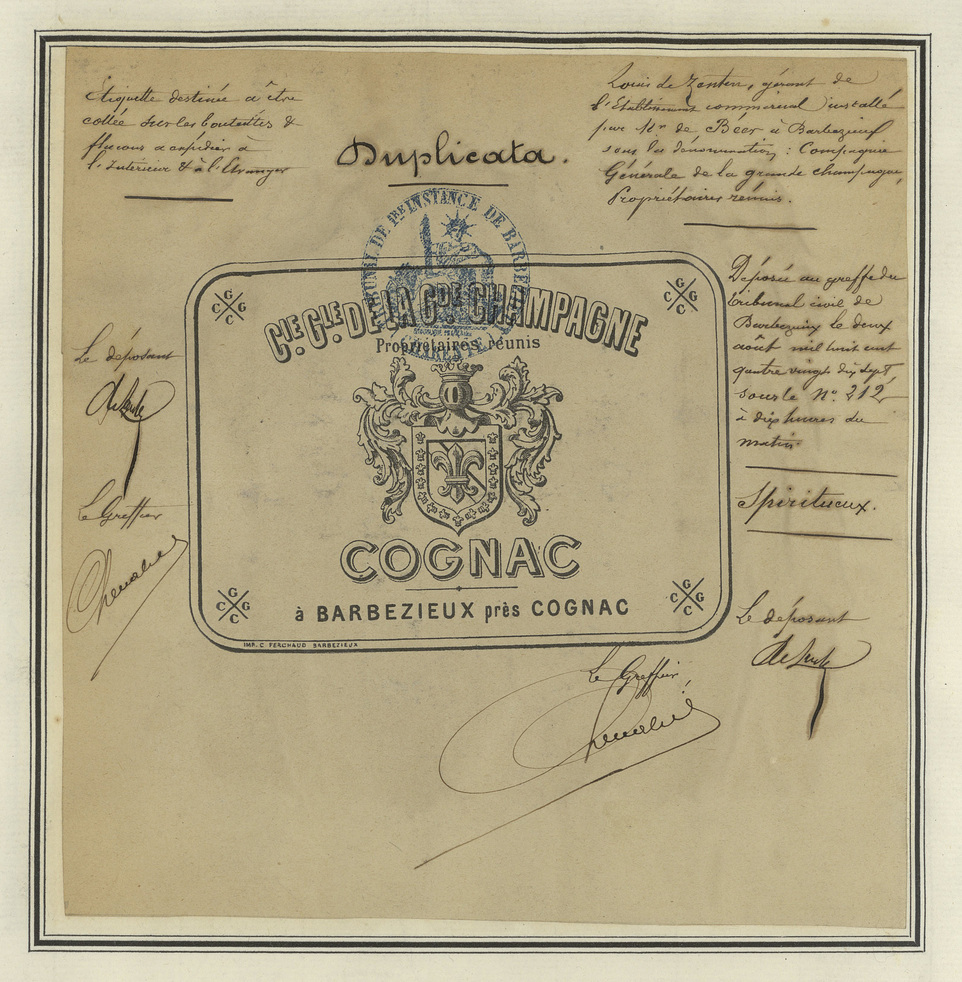 Etiquette destinée à être
collée sur les bouteilles &
flacons à expédier à
l'Intérieur & à l'Etranger
Duplicata.
Louis de Zenten, gérant de
l'Etablissement commercial installé
par Mr de Béer à Barbezieux
sous la dénomination : Compagnie
Générale de la grande champagne,
Propriétaires réunis.
Déposée au greffe du
tribunal civil de
Barbezieux le deux
août mil huit cent
quatre vingt dix sept
sous le No 212
à dix heures du
matin
Spiritueux.
Le déposant
Le Greffier
Chevalier
TRIBUNAL DE 1RE INSTANCE DE BARBEZIEUX
CHARENTE
G C G C
G C G C
CIE GLE DE LA GDE CHAMPAGNE
Propriétaires réunis
COGNAC
à BARBEZIEUX près COGNAC
G C G C
G C G C
IMP. C. PERCHAUD BARBEZIEUX
Le déposant
Le Greffier
Chevalier